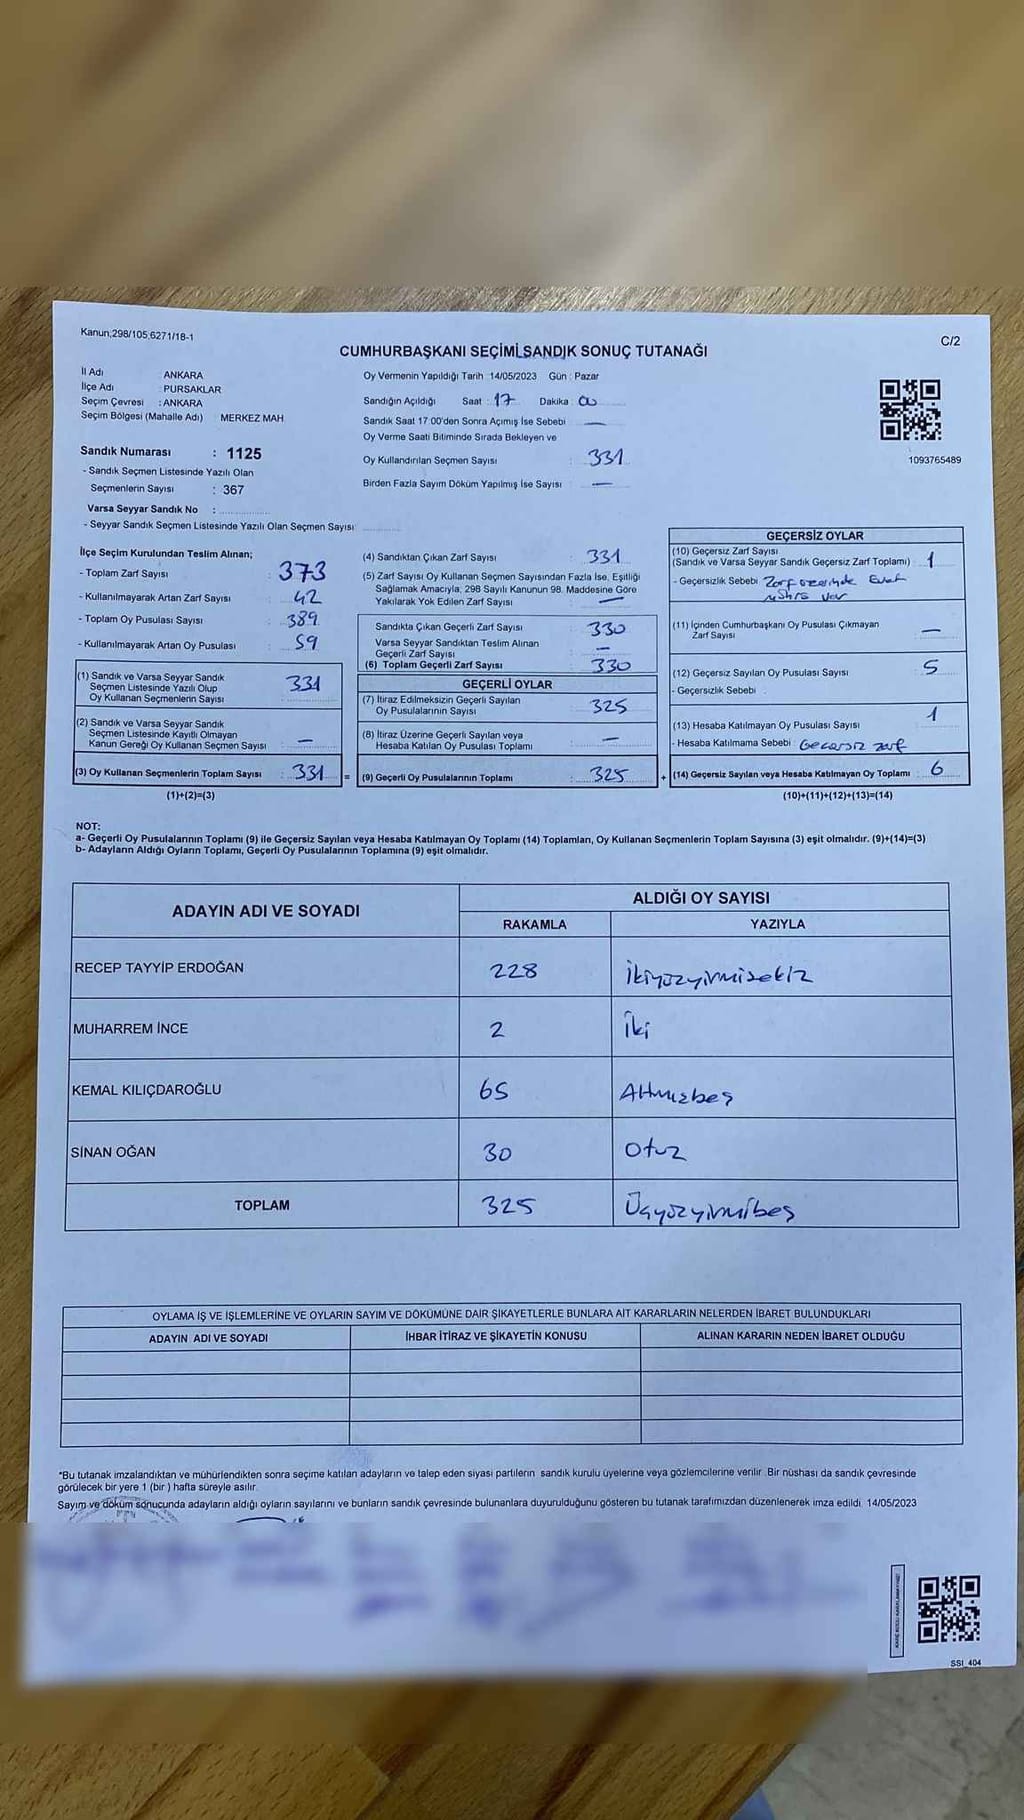 Kanun;298/105;6271/18-1
C/2
CUMHURBAŞKANI SEÇİMİ SANDIK SONUÇ TUTANAĞI
İl Adı ANKARA
İlçe Adı : PURSAKLAR
Seçim Çevresi : ANKARA
Seçim Bölgesi (Mahalle Adı) : MERKEZ MAH
Sandık Numarası : 1125
- Sandık Seçmen Listesinde Yazılı Olan
Seçmenlerin Sayısı : 367
Varsa Seyyar Sandık No :
- Seyyar Sandık Seçmen Listesinde Yazılı Olan Seçmen Sayısı
Oy Vermenin Yapıldığı Tarih :14/05/2023 Gün : Pazar
Sandığın Açıldığı Saat : 17 Dakika : 00
Sandık Saat 17:00'den Sonra Açımış İse Sebebi —
Oy Verme Saati Bitiminde Sırada Bekleyen ve
Oy Kullandırılan Seçmen Sayısı : 331
Birden Fazla Sayım Döküm Yapılmış İse Sayısı : —
1093765489
İlçe Seçim Kurulundan Teslim Alınan;
- Toplam Zarf Sayısı : 373
- Kullanılmayarak Artan Zarf Sayısı : 42
- Toplam Oy Pusulası Sayısı : 389
- Kullanılmayarak Artan Oy Pusulası : 59
(1) Sandık ve Varsa Seyyar Sandık
Seçmen Listesinde Yazılı Olup
Oy Kullanan Seçmenlerin Sayısı : 331
(2) Sandık ve Varsa Seyyar Sandık
Seçmen Listesinde Kayıtlı Olmayan
Kanun Gereği Oy Kullanan Seçmen Sayısı : —
(3) Oy Kullanan Seçmenlerin Toplam Sayısı : 331 =
(1)+(2)=(3)
(4) Sandıktan Çıkan Zarf Sayısı : 331
(5) Zarf Sayısı Oy Kullanan Seçmen Sayısından Fazla İse, Eşitliği
Sağlamak Amacıyla, 298 Sayılı Kanunun 98. Maddesine Göre
Yakılarak Yok Edilen Zarf Sayısı : —
Sandıkta Çıkan Geçerli Zarf Sayısı : 330
Varsa Seyyar Sandıktan Teslim Alınan
Geçerli Zarf Sayısı : —
(6) Toplam Geçerli Zarf Sayısı : 330
GEÇERLİ OYLAR
(7) İtiraz Edilmeksizin Geçerli Sayılan
Oy Pusulalarının Sayısı : 325
(8) İtiraz Üzerine Geçerli Sayılan veya
Hesaba Katılan Oy Pusulası Toplamı : —
(9) Geçerli Oy Pusulalarının Toplamı : 325 +
GEÇERSİZ OYLAR
(10) Geçersiz Zarf Sayısı
(Sandık ve Varsa Seyyar Sandık Geçersiz Zarf Toplamı) : 1
- Geçersizlik Sebebi : Zarf üzerinde Evet
mührü var
(11) İçinden Cumhurbaşkanı Oy Pusulası Çıkmayan
Zarf Sayısı : —
(12) Geçersiz Sayılan Oy Pusulası Sayısı : 5
- Geçersizlik Sebebi :
(13) Hesaba Katılmayan Oy Pusulası Sayısı : 1
- Hesaba Katılmama Sebebi : Geçersiz zarf
(14) Geçersiz Sayılan veya Hesaba Katılmayan Oy Toplamı : 6
(10)+(11)+(12)+(13)=(14)
NOT:
a- Geçerli Oy Pusulalarının Toplamı (9) ile Geçersiz Sayılan veya Hesaba Katılmayan Oy Toplamı (14) Toplamları, Oy Kullanan Seçmenlerin Toplam Sayısına (3) eşit olmalıdır. (9)+(14)=(3)
b- Adayların Aldığı Oyların Toplamı, Geçerli Oy Pusulalarının Toplamına (9) eşit olmalıdır.
ADAYIN ADI VE SOYADI ALDIĞI OY SAYISI
RAKAMLA YAZIYLA
RECEP TAYYİP ERDOĞAN 228 İkiyüzyirmisekiz
MUHARREM İNCE 2 İki
KEMAL KILIÇDAROĞLU 65 Altmışbeş
SİNAN OĞAN 30 Otuz
TOPLAM 325 Üçyüzyirmibeş
OYLAMA İŞ VE İŞLEMLERİNE VE OYLARIN SAYIM VE DÖKÜMÜNE DAİR ŞİKAYETLERLE BUNLARA AİT KARARLARIN NELERDEN İBARET BULUNDUKLARI
ADAYIN ADI VE SOYADI İHBAR İTİRAZ VE ŞİKAYETİN KONUSU ALINAN KARARIN NEDEN İBARET OLDUĞU
*Bu tutanak imzalandıktan ve mühürlendikten sonra seçime katılan adayların ve talep eden siyasi partilerin sandık kurulu üyelerine veya gözlemcilerine verilir. Bir nüshası da sandık çevresinde
görülecek bir yere 1 (bir ) hafta süreyle asılır.
Sayım ve döküm sonucunda adayların aldığı oyların sayılarını ve bunların sandık çevresinde bulunanlara duyurulduğunu gösteren bu tutanak tarafımızdan düzenlenerek imza edildi. 14/05/2023
SSI_404